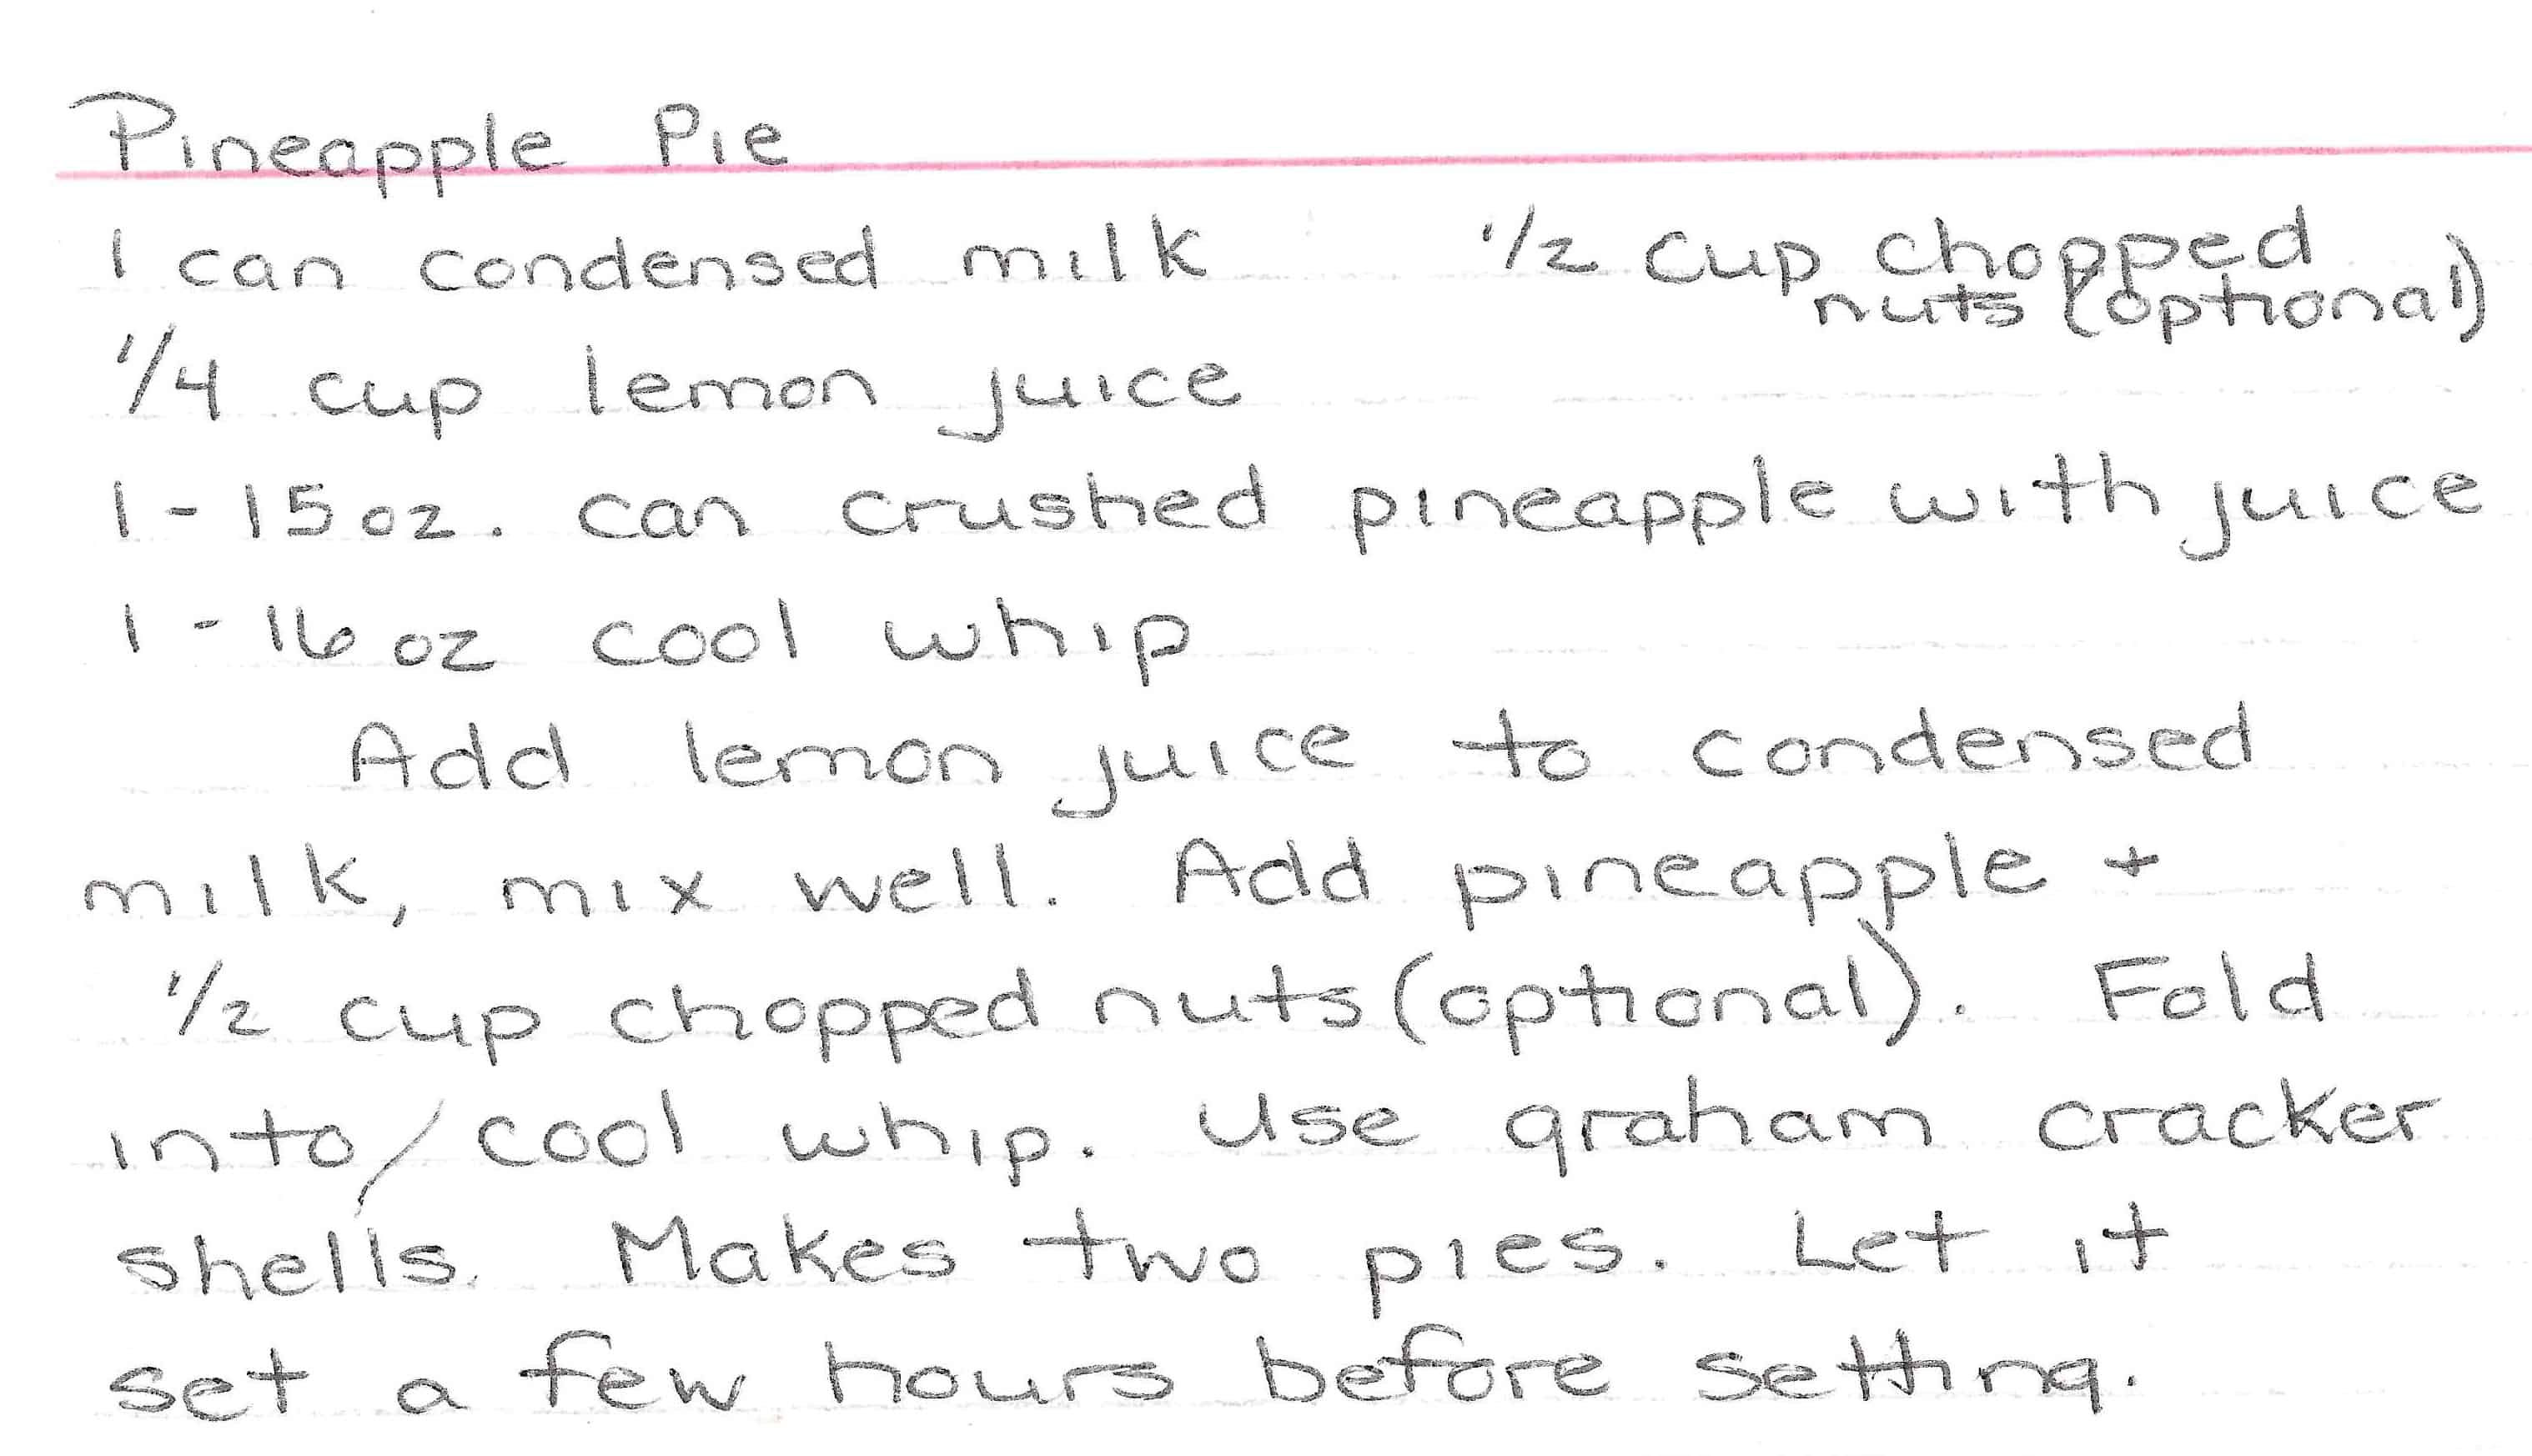 Pineapple Pie
1 can condensed milk
1/2 cup chopped
nuts (optional)
1/4 cup lemon juice
1-15 oz. can crushed pineapple with juice
1-16 oz cool whip
Add lemon juice to condensed
milk, mix well. Add pineapple +
1/2 cup chopped nuts (optional). Fold
into/cool whip. Use graham cracker
shells. Makes two pies. Let it
set a few hours before setting.